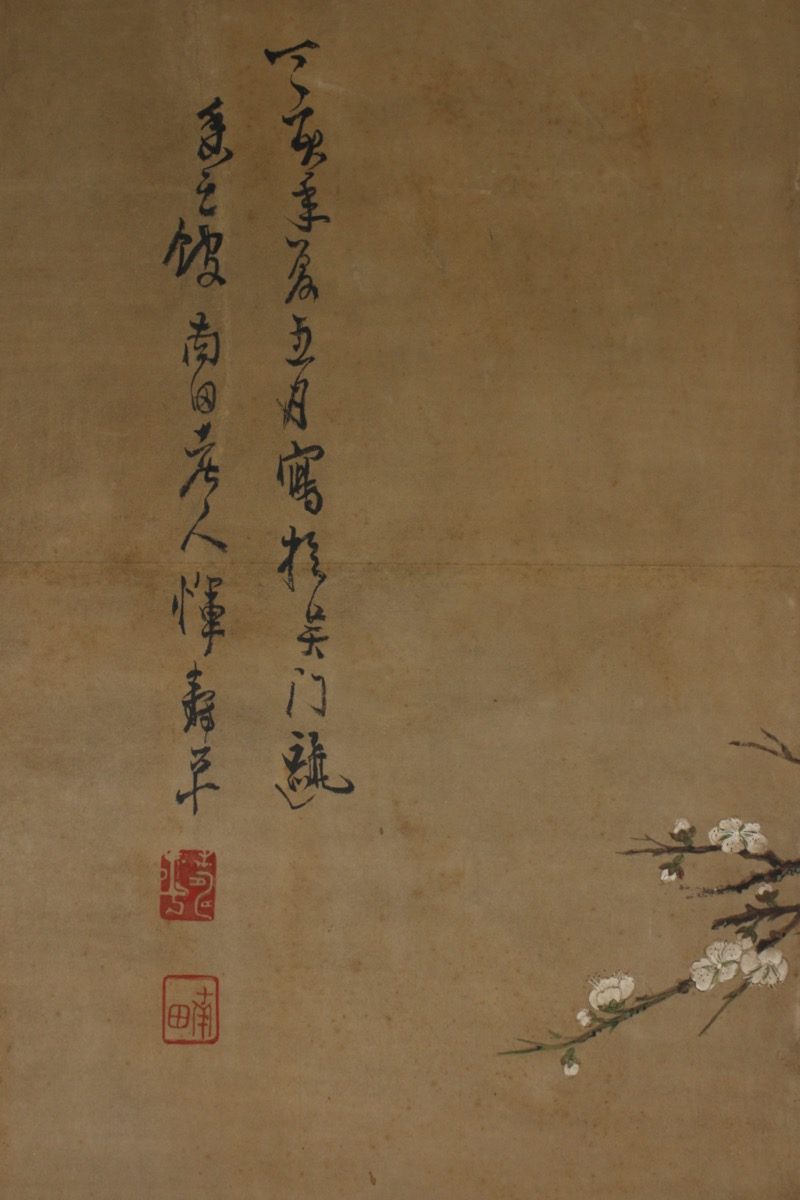 丁亥年夏五月寫於吳門甌
香之館 南田老人惲壽平
壽平
南田